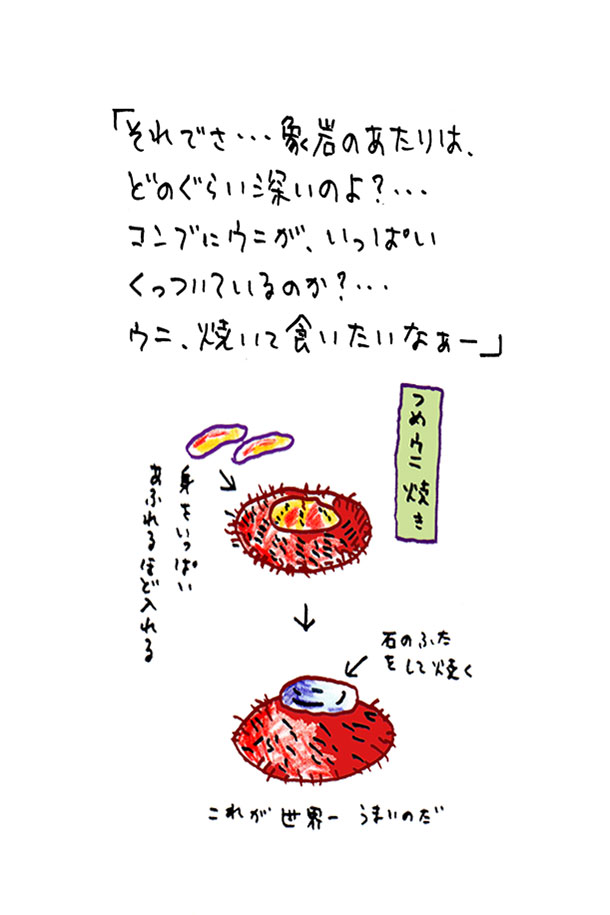 「それでさ・・・象岩のあたりは、
どのぐらい深いのよ？・・・
コンブにウニが、いっぱい
くっついているのか？・・・
ウニ、焼いて食いたいなぁー」
つめウニ焼き
身をいっぱい
あふれるほど入れる
石のふた
をして焼く
これが世界一 うまいのだ